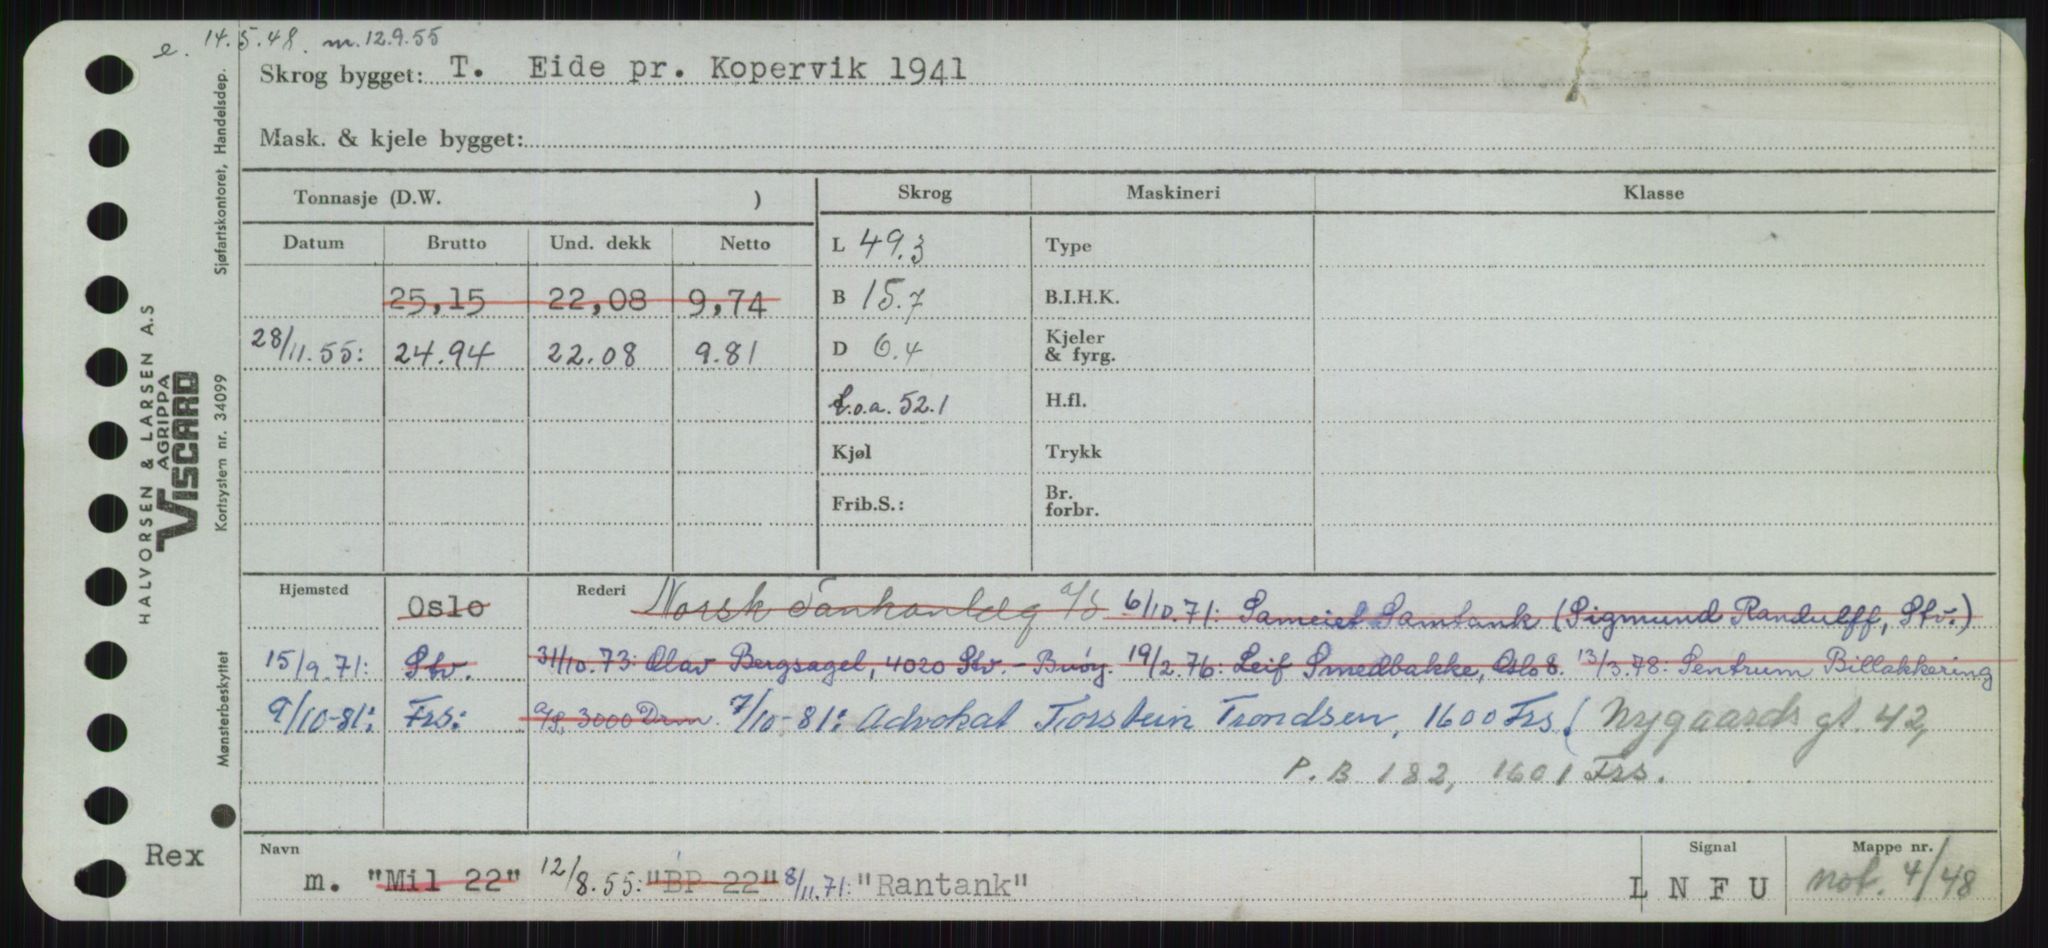 e. 14.5.48. m. 12.9.55
Skrog bygget: T. Eide pr. Kopervik 1941
Mask. & kjele bygget:
Tonnasje (D.W. ) Skrog Maskineri Klasse
Datum Brutto Und. dekk Netto L 49.3 Type
25,15 22,08 9,74 B 15.7 B.I.H.K.
28/11.55: 24.94 22.08 9.81 D 6.4 Kjeler & fyrg.
L.o.a. 52.1 H.fl.
Kjøl Trykk
Frib.S.: Br. forbr.
Hjemsted Oslo Rederi Norsk Tankanlegg a/s 6/10.71: Sameiet Samtank (Sigmund Randulff, Stv.)
15/9.71: Stv. 31/10.73: Olav Bergsagel, 4020 Stv. - Buøy. 19/2.76: Leif Smedbakke, Oslo 8. 13/3.78: Sentrum Billakkering
9/10-81: Frs: a/s, 3000 Drm. 7/10-81: Advokat Torstein Trondsen, 1600 Frs. ( Nygaards gt. 42,
P.B 182, 1601 Frs.
Navn Signal Mappe nr.
m. "Mil 22" 12/8.55: "BP 22" 8/11.71: "Rantank" L N F U not. 4/48
Rex
HALVORSEN & LARSEN A.S
AGRIPPA
VISCARD
Mønsterbeskyttet Kortsystem nr. 34099 Sjøfartskontoret, Handelsdep.